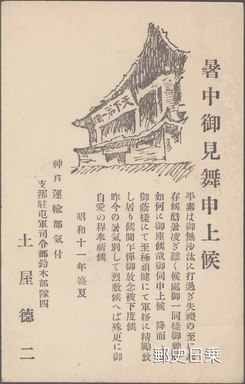 暑中御見舞申上候
平素は御無沙汰に打過ぎ失禮の至に
存候酷暑凌ぎ難く候處御一同樣御
如何に御座候哉御伺申上候 降而
御蔭樣にて至極頑健にて軍務に精勵致
し居り候間乍憚御放念被下度候
昨今の暑氣別して烈敷候へば殊更に御
自愛の程奉祈候
昭和十一年盛夏
神戸運輸部氣付
支那駐屯軍司令部鈴木部隊四
土屋德二
天下第一關
郵史日乗